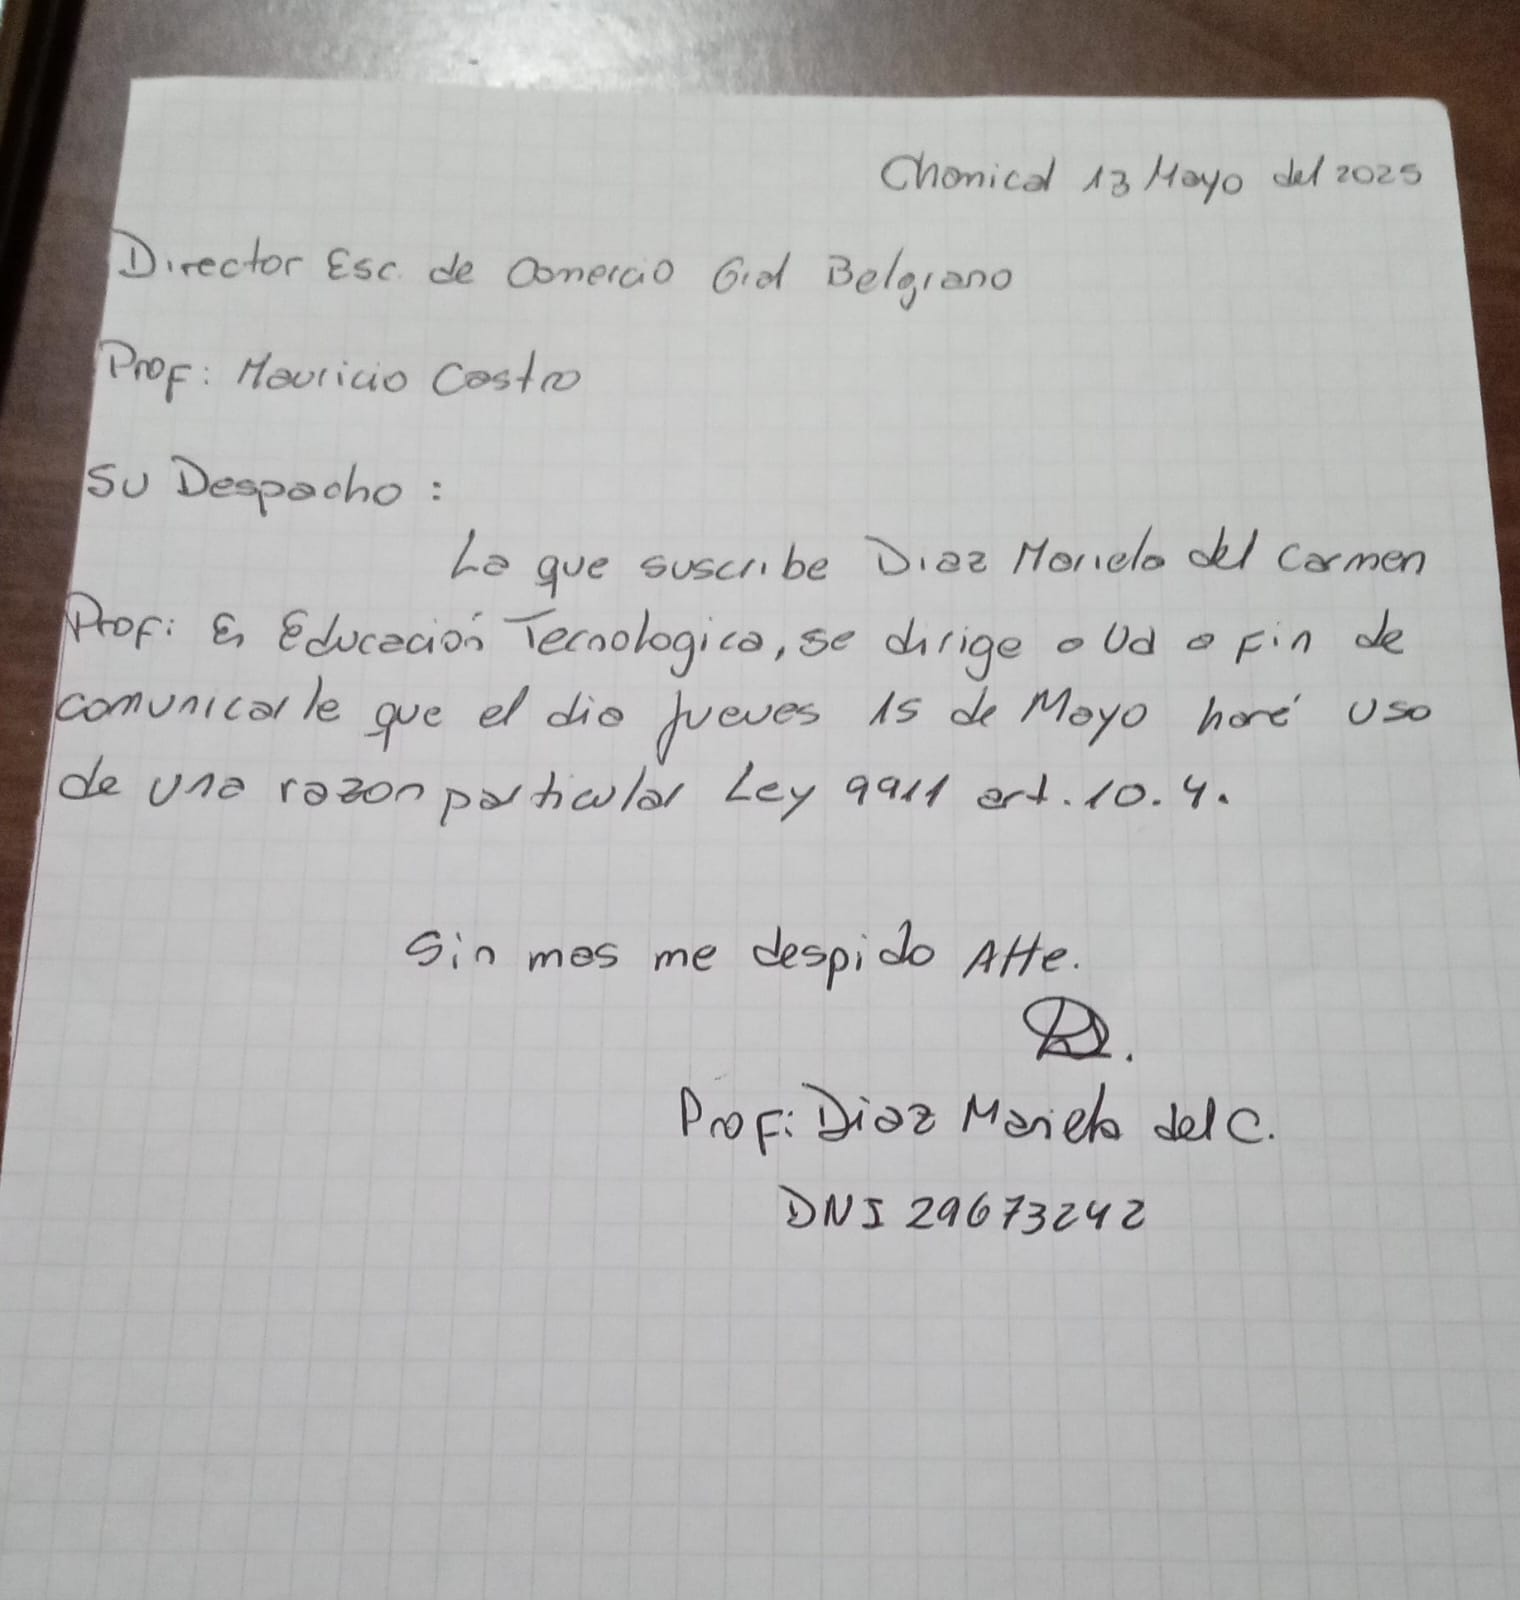 Chamical 13 Mayo del 2025
Director Esc. de Comercio Gral Belgrano
Prof: Mauricio Castro
Su Despacho :
La que suscribe Diaz Mariela del Carmen
Prof: En Educación Tecnologica, se dirige a Ud a fin de
comunicarle que el dia jueves 15 de Mayo haré uso
de una razon particular Ley 9911 art. 10.4.
Sin mas me despido Atte.
Prof: Diaz Mariela del C.
DNI 29673242